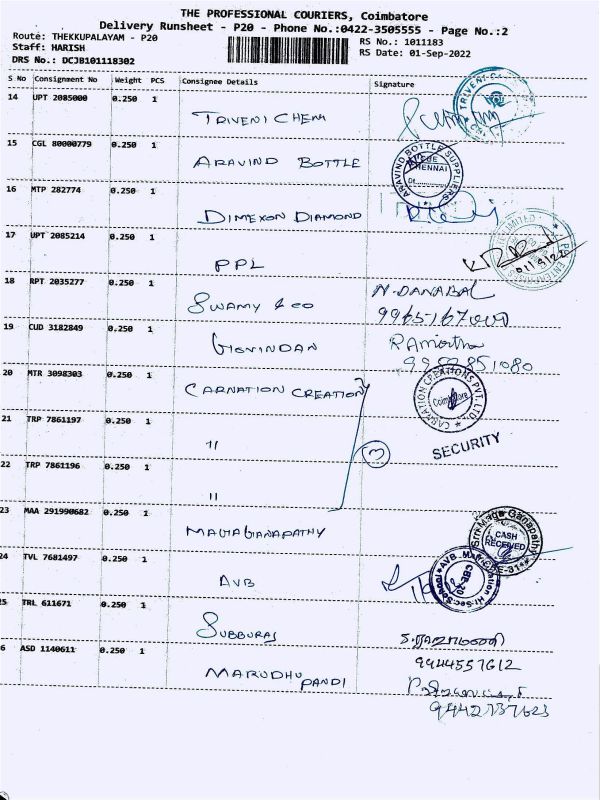 THE PROFESSIONAL COURIERS, Coimbatore
Delivery Runsheet - P20 - Phone No.:0422-3505555 - Page No.:2
Route: THEKKUPALAYAM - P20
RS No.: 1011183
Staff: HARISH
RS Date: 01-Sep-2022
DRS No.: DCJB101118302
S No Consignment No Weight PCS Consignee Details Signature
14 UPT 2085000 0.250 1
TRIVENI CHEM
15 CGL 80000779 0.250 1
ARAVIND BOTTLE
ARAVIND BOTTLE SUPPLIERS
CHENNAI
16 MTP 282774 0.250 1
DIMEXON DIAMOND
17 UPT 2085214 0.250 1
PPL
18 RPT 2035277 0.250 1
SWAMY & CO
N. DANABAL
19 CUD 3182849 0.250 1
GOVINDAN
20 MTR 3098303 0.250 1
CARNATION CREATION
CARNATION CREATIONS PVT. LTD.
Coimbatore
21 TRP 7861197 0.250 1
"
3
SECURITY
22 TRP 7861196 0.250 1
"
23 MAA 291990682 0.250 1
MAGAGANAPATHY
Sri Maga Ganapathy
CASH
RECEIVED
24 TVL 7681497 0.250 1
AVB
25 TRL 611671 0.250 1
SUBBURAJ
9944557612
6 ASD 1140611 0.250 1
MARUDHU
PANDI